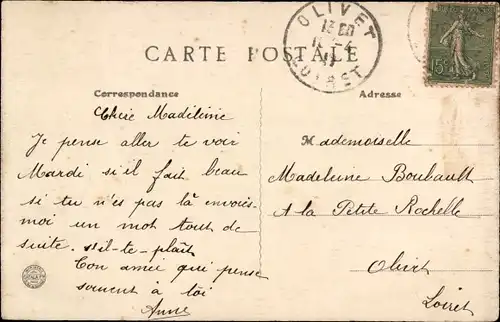 CARTE POSTALE
OLIVET
LOIRET
15c
Correspondance
Adresse
Chère Madileine
Je pense aller te voir
Mardi si il fait beau
si tu n'es pas là envoies-
moi un mot tout de
suite. s'il-te-plaît
Ton amie qui pense
souvent à toi
Anne
Mademoiselle
Madeleine Boubault
A la Petite Rochelle
Olivet
Loiret